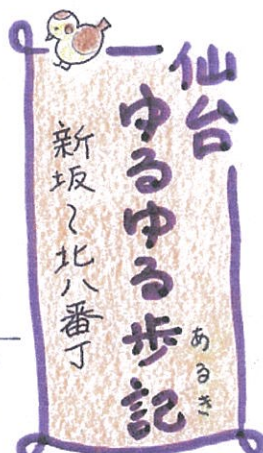 仙台
ゆるゆる歩記
あるき
新坂〜北八番丁